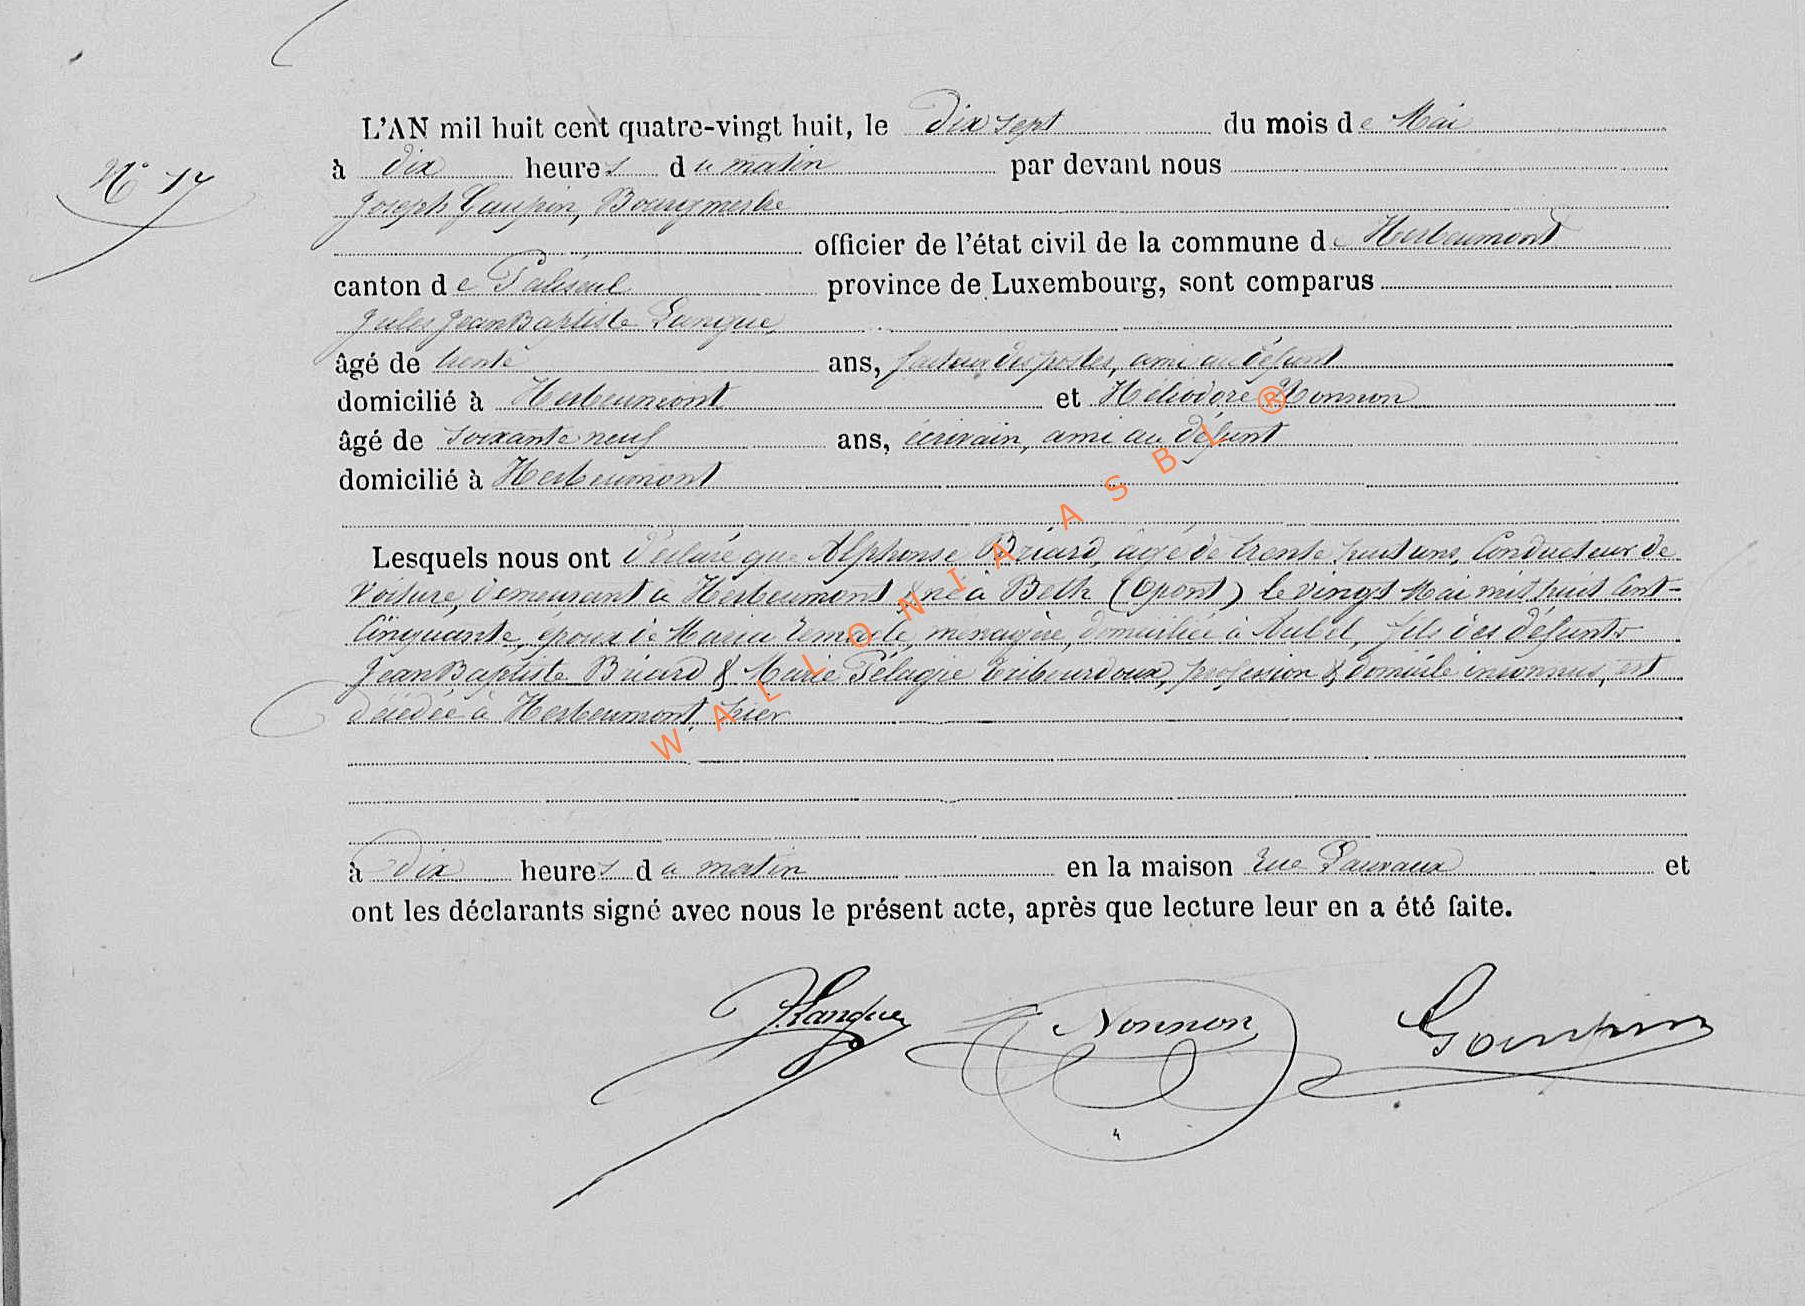 L'AN mil huit cent quatre-vingt huit, le Dix sept du mois de Mai
N° 17
à dix heures du matin par devant nous
Joseph Goupin, Bourgmestre
officier de l'état civil de la commune de Herbeumont
canton de Paliseul province de Luxembourg, sont comparus
Jules Jean Baptiste Langue
âgé de trente ans, facteur des postes, ami au défunt
domicilié à Herbeumont et Héliodore Nonnon
âgé de soixante neuf ans, écrivain, ami au défunt
domicilié à Herbeumont
Lesquels nous ont déclaré que Alphonse Briard, âgé de trente huit ans, Conducteur de
Voiture, demeurant à Herbeumont & né à Beth (Opont) le vingt Mai mil huit Cent-
Cinquante, époux de Maria Remacle, ménagère, domiciliée à Aubel, fils des défunts
Jean Baptiste Briard & Marie Pélagie Tribourdoux, profession & domicile inconnus, est
décédé à Herbeumont, hier
à Dix heures du matin en la maison rue Lauvaux et
ont les déclarants signé avec nous le présent acte, après que lecture leur en a été faite.
J Langue Nonnon Goupin
WALLONIA ASBL ®